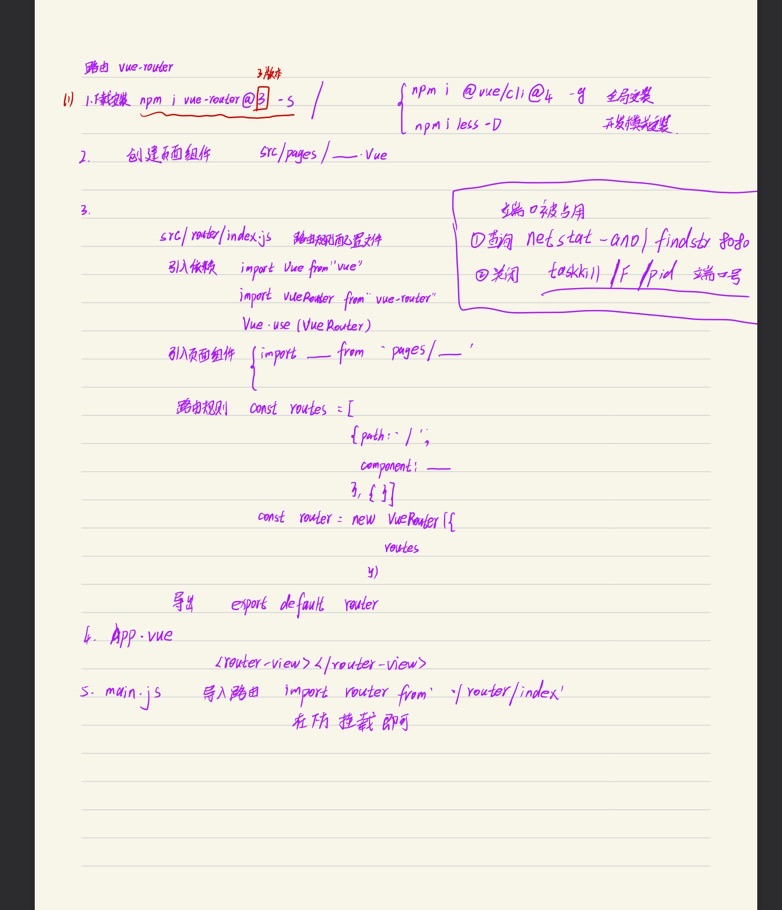 路由 vue-router
3版本
(1) 1.下载安装 npm i vue-router@3 -S
npm i @vue/cli@4 -g 全局安装
npm i less -D 开发模式安装
2. 创建页面组件 src/pages/___.vue
端口被占用
①查询 netstat-ano| findstr 8080
②关闭 taskkill /F /pid 端口号
3.
src/router/index.js 路由规则配置文件
引入依赖 import Vue from "vue"
import vueRouter from "vue-router"
Vue.use (VueRouter)
引入页面组件 { import ___ from ' pages/___ '
路由规则 const routes = [
{path: ' / ',
component: ___
}, { }]
const router = new VueRouter({
routes
})
导出 export default router
4. App.vue
<router-view></router-view>
5. main.js 导入路由 import router from './router/index'
在下方 挂载 即可